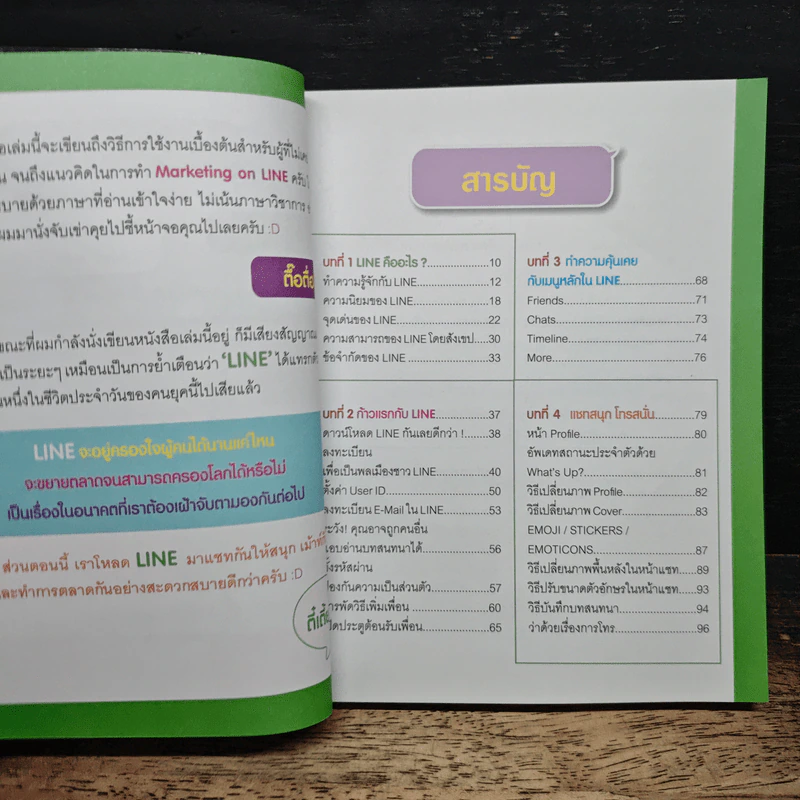 อเล่มนี้จะเขียนถึงวิธีการใช้งานเบื้องต้นสำหรับผู้ที่ไม่เคย
น จนถึงแนวคิดในการทำ Marketing on LINE ครับ
บายด้วยภาษาที่อ่านเข้าใจง่าย ไม่เน้นภาษาวิชาการ
ผมมานั่งจับเข่าคุยไปชี้หน้าจอคุณไปเลยครับ :D
ตื๊อดือ
ขณะที่ผมกำลังนั่งเขียนหนังสือเล่มนี้อยู่ ก็มีเสียงสัญญาณ
เป็นระยะๆ เหมือนเป็นการย้ำเตือนว่า 'LINE' ได้แทรกตัว
นหนึ่งในชีวิตประจำวันของคนยุคนี้ไปเสียแล้ว
LINE จะอยู่ครองใจผู้คนได้นานแค่ไหน
จะขยายตลาดจนสามารถครองโลกได้หรือไม่
เป็นเรื่องในอนาคตที่เราต้องเฝ้าจับตามองกันต่อไป
ส่วนตอนนี้ เราโหลด LINE มาแชทกันให้สนุก เม้าท์
และทำการตลาดกันอย่างสะดวกสบายดีกว่าครับ :D
สารบัญ
บทที่ 1 LINE คืออะไร ?....................10
ทำความรู้จักกับ LINE....................12
ความนิยมของ LINE....................18
จุดเด่นของ LINE....................22
ความสามารถของ LINE โดยสังเขป.....30
ข้อจำกัดของ LINE....................33
บทที่ 2 ก้าวแรกกับ LINE....................37
ดาวน์โหลด LINE กันเลยดีกว่า !......38
ลงทะเบียน
เพื่อเป็นพลเมืองชาว LINE...............40
ตั้งค่า User ID....................50
ลงทะเบียน E-Mail ใน LINE...........53
ระวัง! คุณอาจถูกคนอื่น
อบอ่านบทสนทนาได้....................56
ั้งรหัสผ่าน
องกันความเป็นส่วนตัว....................57
ารพัดวิธีเพิ่มเพื่อน....................60
ิดประตูต้อนรับเพื่อน....................65
บทที่ 3 ทำความคุ้นเคย
กับเมนูหลักใน LINE....................68
Friends....................71
Chats....................73
Timeline....................74
More....................76
บทที่ 4 แชทสนุก โทรสนั่น..........79
หน้า Profile....................80
อัพเดทสถานะประจำตัวด้วย
What's Up?....................81
วิธีเปลี่ยนภาพ Profile....................82
วิธีเปลี่ยนภาพ Cover....................83
EMOJI / STICKERS /
EMOTICONS....................87
วิธีเปลี่ยนภาพพื้นหลังในหน้าแชท.....89
วิธีปรับขนาดตัวอักษรในหน้าแชท......93
วิธีบันทึกบทสนทนา....................94
ว่าด้วยเรื่องการโทร....................96